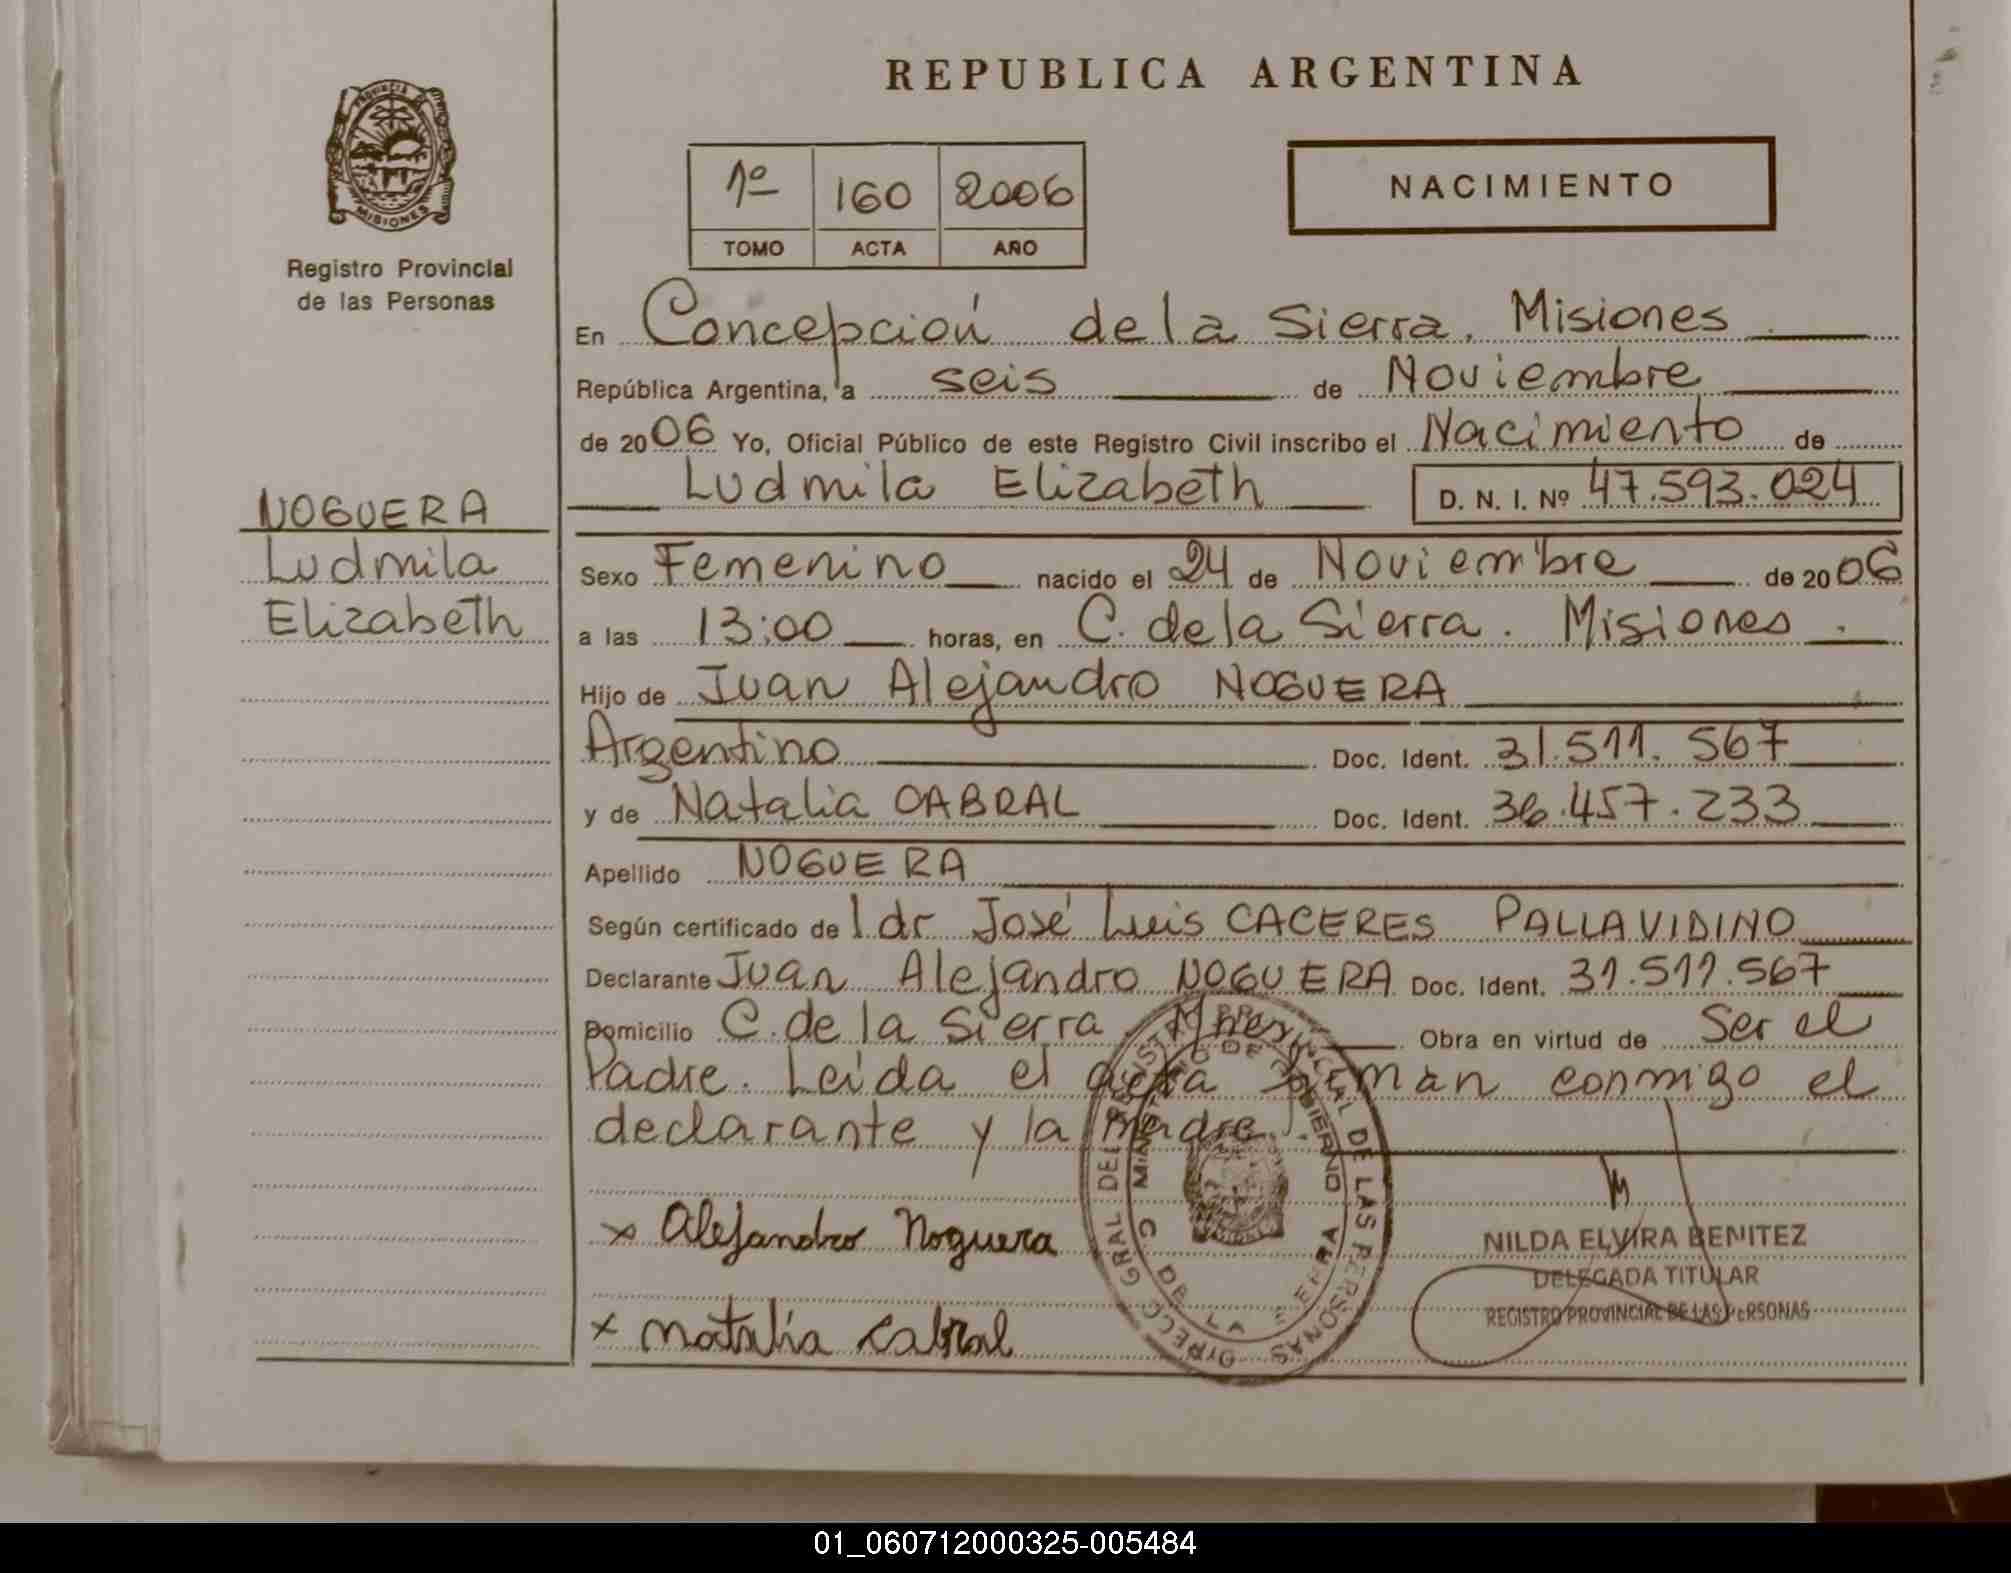 REPUBLICA ARGENTINA
PROVINCIA DE
MISIONES
Registro Provincial
de las Personas
1º 160 2006
TOMO ACTA AÑO
NACIMIENTO
En Concepción de la Sierra. Misiones
República Argentina, a seis de Noviembre
de 2006 Yo, Oficial Público de este Registro Civil inscribo el Nacimiento de
Ludmila Elizabeth D. N. I. Nº 47.593.024
NOGUERA
Ludmila
Elizabeth
Sexo Femenino nacido el 24 de Noviembre de 2006
a las 13:00 horas, en C. de la Sierra. Misiones.
Hijo de Juan Alejandro NOGUERA
Argentino Doc. Ident. 31.511.567
y de Natalia CABRAL Doc. Ident. 36.457.233
Apellido NOGUERA
Según certificado de l dr José Luis CACERES PALLAVIDINO
Declarante Juan Alejandro NOGUERA Doc. Ident. 31.511.567
Domicilio C. de la Sierra. Mnes Obra en virtud de Ser el
Padre. Leida el acta firman conmigo el
declarante y la madre.
x Alejandro Noguera
x Natalia Cabral
DIRECC GRAL DEL REGISTRO PROVINCIAL DE LAS PERSONAS
MINISTERIO DE GOBIERNO
C DE LA SIERRA
NILDA ELVIRA BENITEZ
DELEGADA TITULAR
REGISTRO PROVINCIAL DE LAS PERSONAS
01_060712000325-005484